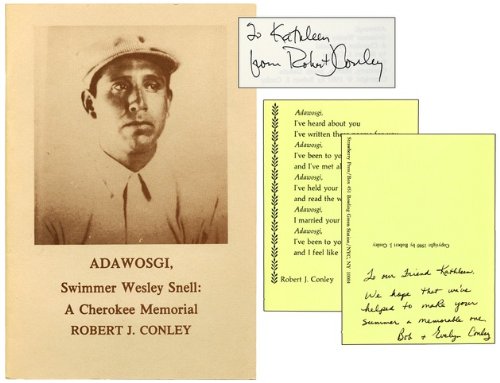 ADAWOSGI,
Swimmer Wesley Snell:
A Cherokee Memorial
ROBERT J. CONLEY
To Kathleen
from Robert J Conley
Adawosgi,
I've heard about you
I've written
Adawosgi,
I've been to yo
and I've met a
Adawosgi,
I've held your
and read the w
Adawosgi,
I married your
Adawosgi,
I've been to yo
and I feel like
Robert J. Conley
Strawberry Press/Box 451 Bowling Green Station/NYC, NY 10004
Copyright 1980 by Robert J. Conley
To our friend Kathleen.
We hope that we've
helped to make your
summer a memorable one.
Bob + Evelyn Conley